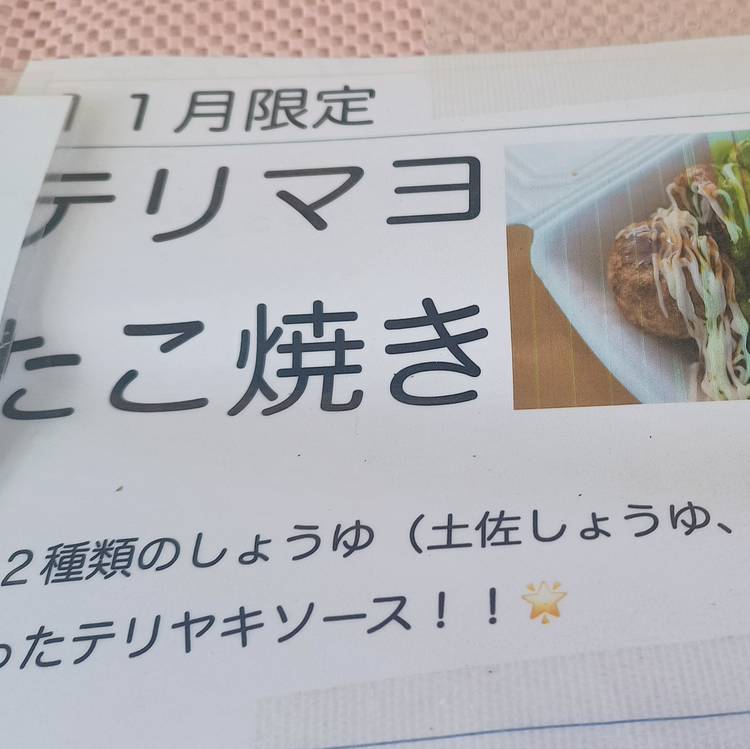 11月限定
テリマヨ
たこ焼き
2種類のしょうゆ（土佐しょうゆ、
ったテリヤキソース！！🌟